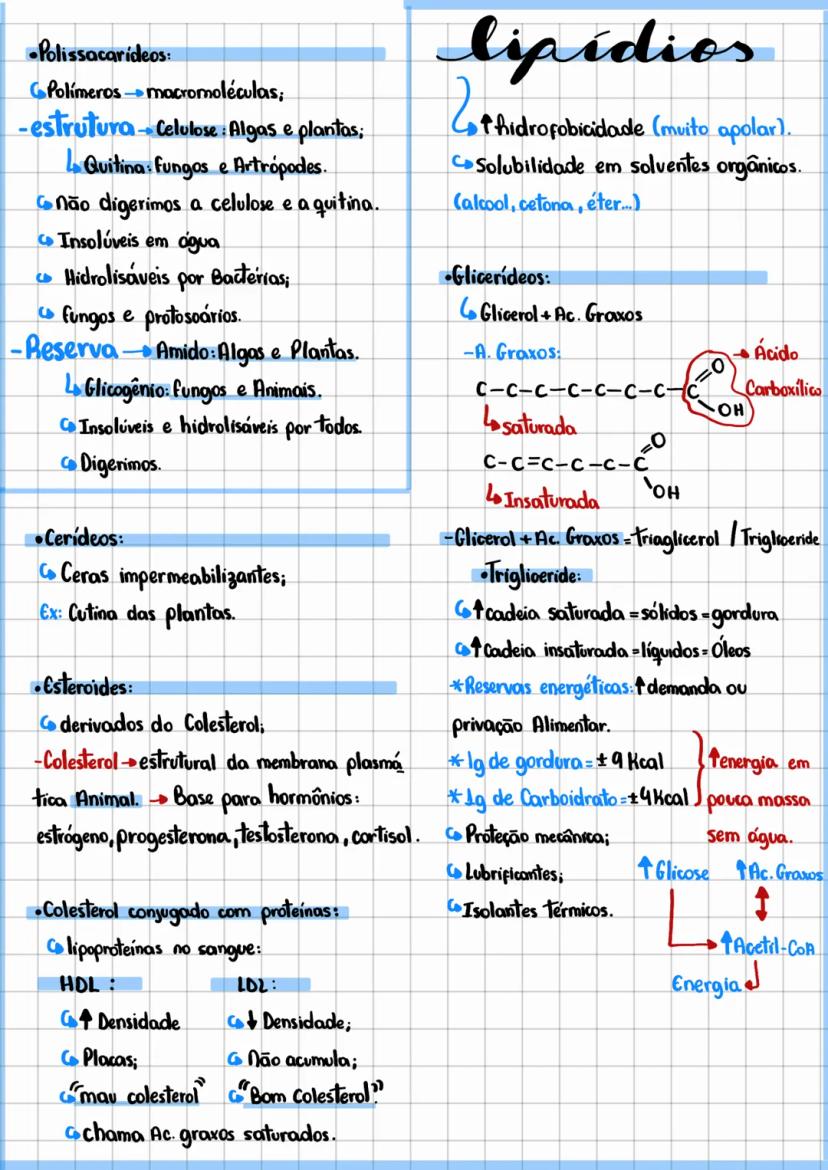 •Polissacarídeos:
↳Polímeros → macromoléculas;
-estrutura → Celulose: Algas e plantas;
↳Quitina: fungos e Artrópodes.
↳não digerimos a celulose e a quitina.
↳Insolúveis em água
↳Hidrolisáveis por Bactérias;
↳fungos e protosoários.
-Reserva → Amido: Algas e Plantas.
↳Glicogênio: fungos e Animais.
↳Insolúveis e hidrolisáveis por todos.
↳Digerimos.
•Cerídeos:
↳Ceras impermeabilizantes;
Ex: Cutina das plantas.
•Esteroides:
↳derivados do Colesterol;
-Colesterol → estrutural da membrana plasmá
tica Animal. → Base para hormônios:
estrógeno, progesterona, testosterona, cortisol.
•Colesterol conjugado com proteínas:
↳lipoproteínas no sangue:
HDL: LDL:
↳↑ Densidade ↳↓ Densidade;
↳Placas; ↳Não acumula;
↳"mau colesterol" ↳"Bom Colesterol".
↳chama Ac. graxos saturados.
lipídios
↳↑hidrofobicidade (muito apolar).
↳Solubilidade em solventes orgânicos.
(alcool, cetona, éter...)
•Glicerídeos:
↳Glicerol + Ac. Graxos
-A. Graxos:
→ Ácido
Carboxílico
C-C-C-C-C-C-C-C=O
OH
↳saturada
C-C=C-C-C-C=O
OH
↳Insaturada
-Glicerol + Ac. Graxos = triaglicerol / Triglioeride
•Triglioeride:
↳↑cadeia saturada = sólidos = gordura
↳↑Cadeia insaturada = líquidos = Óleos
*Reservas energéticas: ↑demanda ou
privação Alimentar.
*1g de gordura = ± 9 Kcal
*1g de Carboidrato = ±4Kcal
↑energia em
pouca massa
sem água.
↳Proteção mecânica;
↳Lubrificantes;
↳Isolantes térmicos.
↑Glicose ↑Ac. Graxos
→ ↑Acetil-CoA
Energia